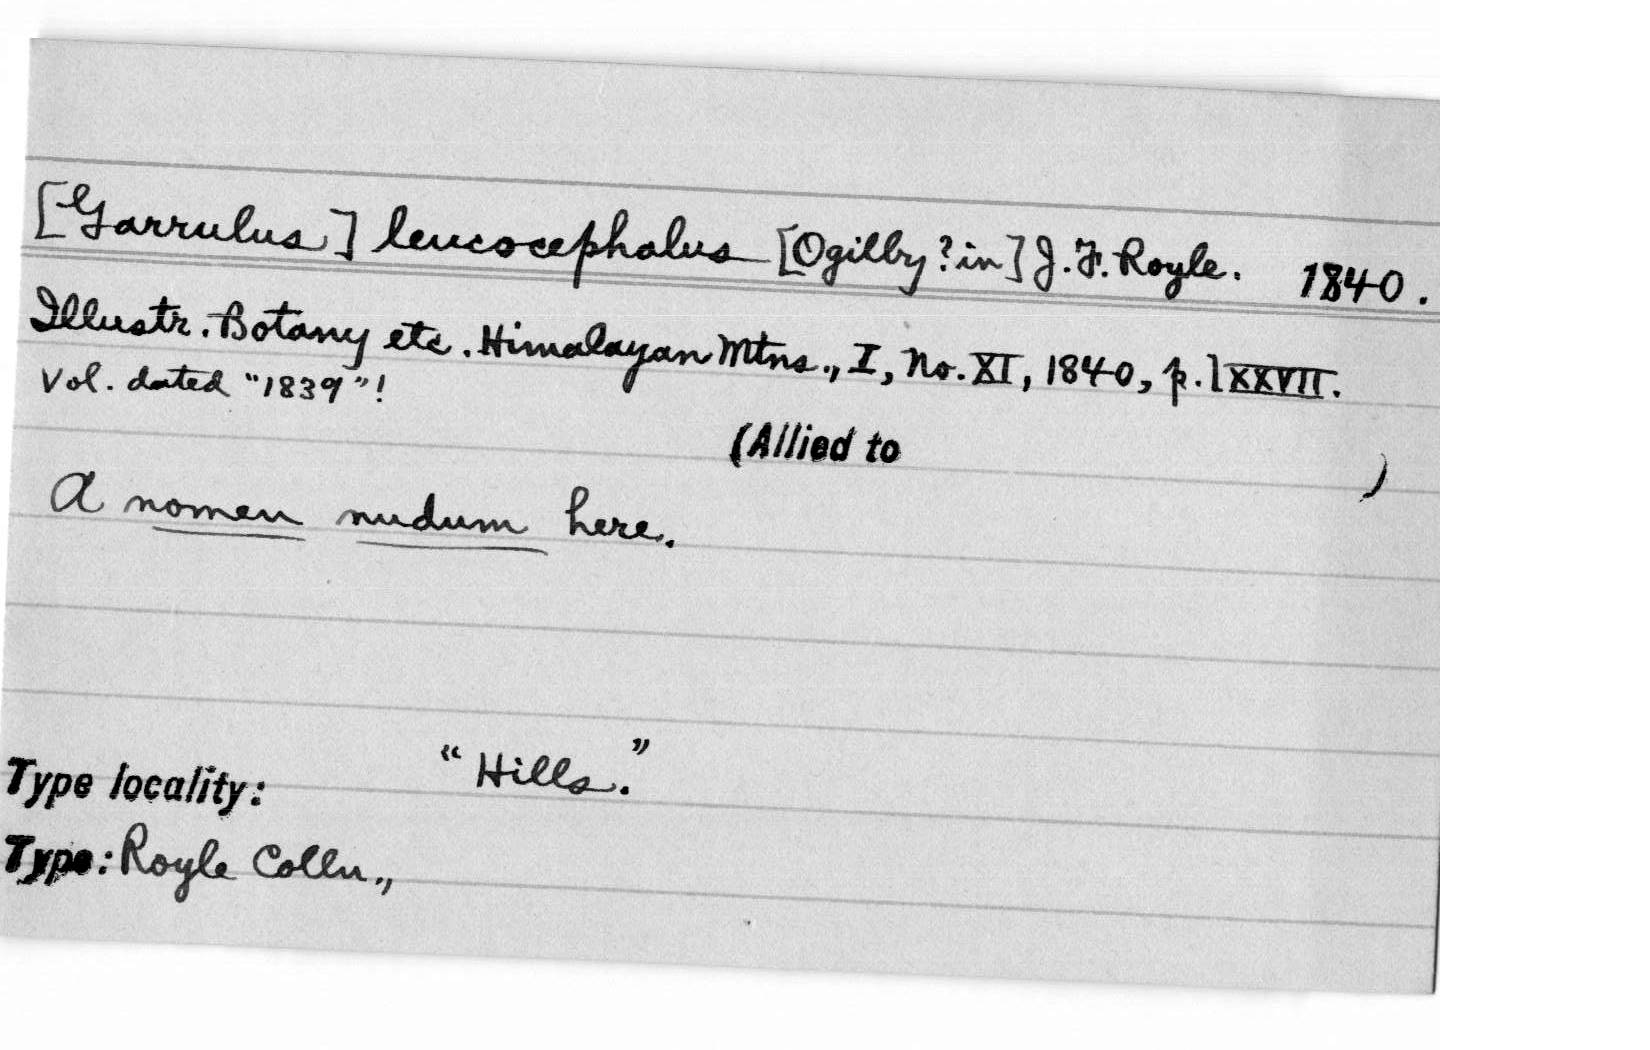 [Garrulus] leucocephalus [Ogilby? in] J. F. Royle. 1840.
Illustr. Botany etc. Himalayan Mtns., I, No. XI, 1840, p. lXXVII.
Vol. dated "1839"!
(Allied to )
A nomen nudum here.
Type locality: "Hills."
Type: Royle Colln.,